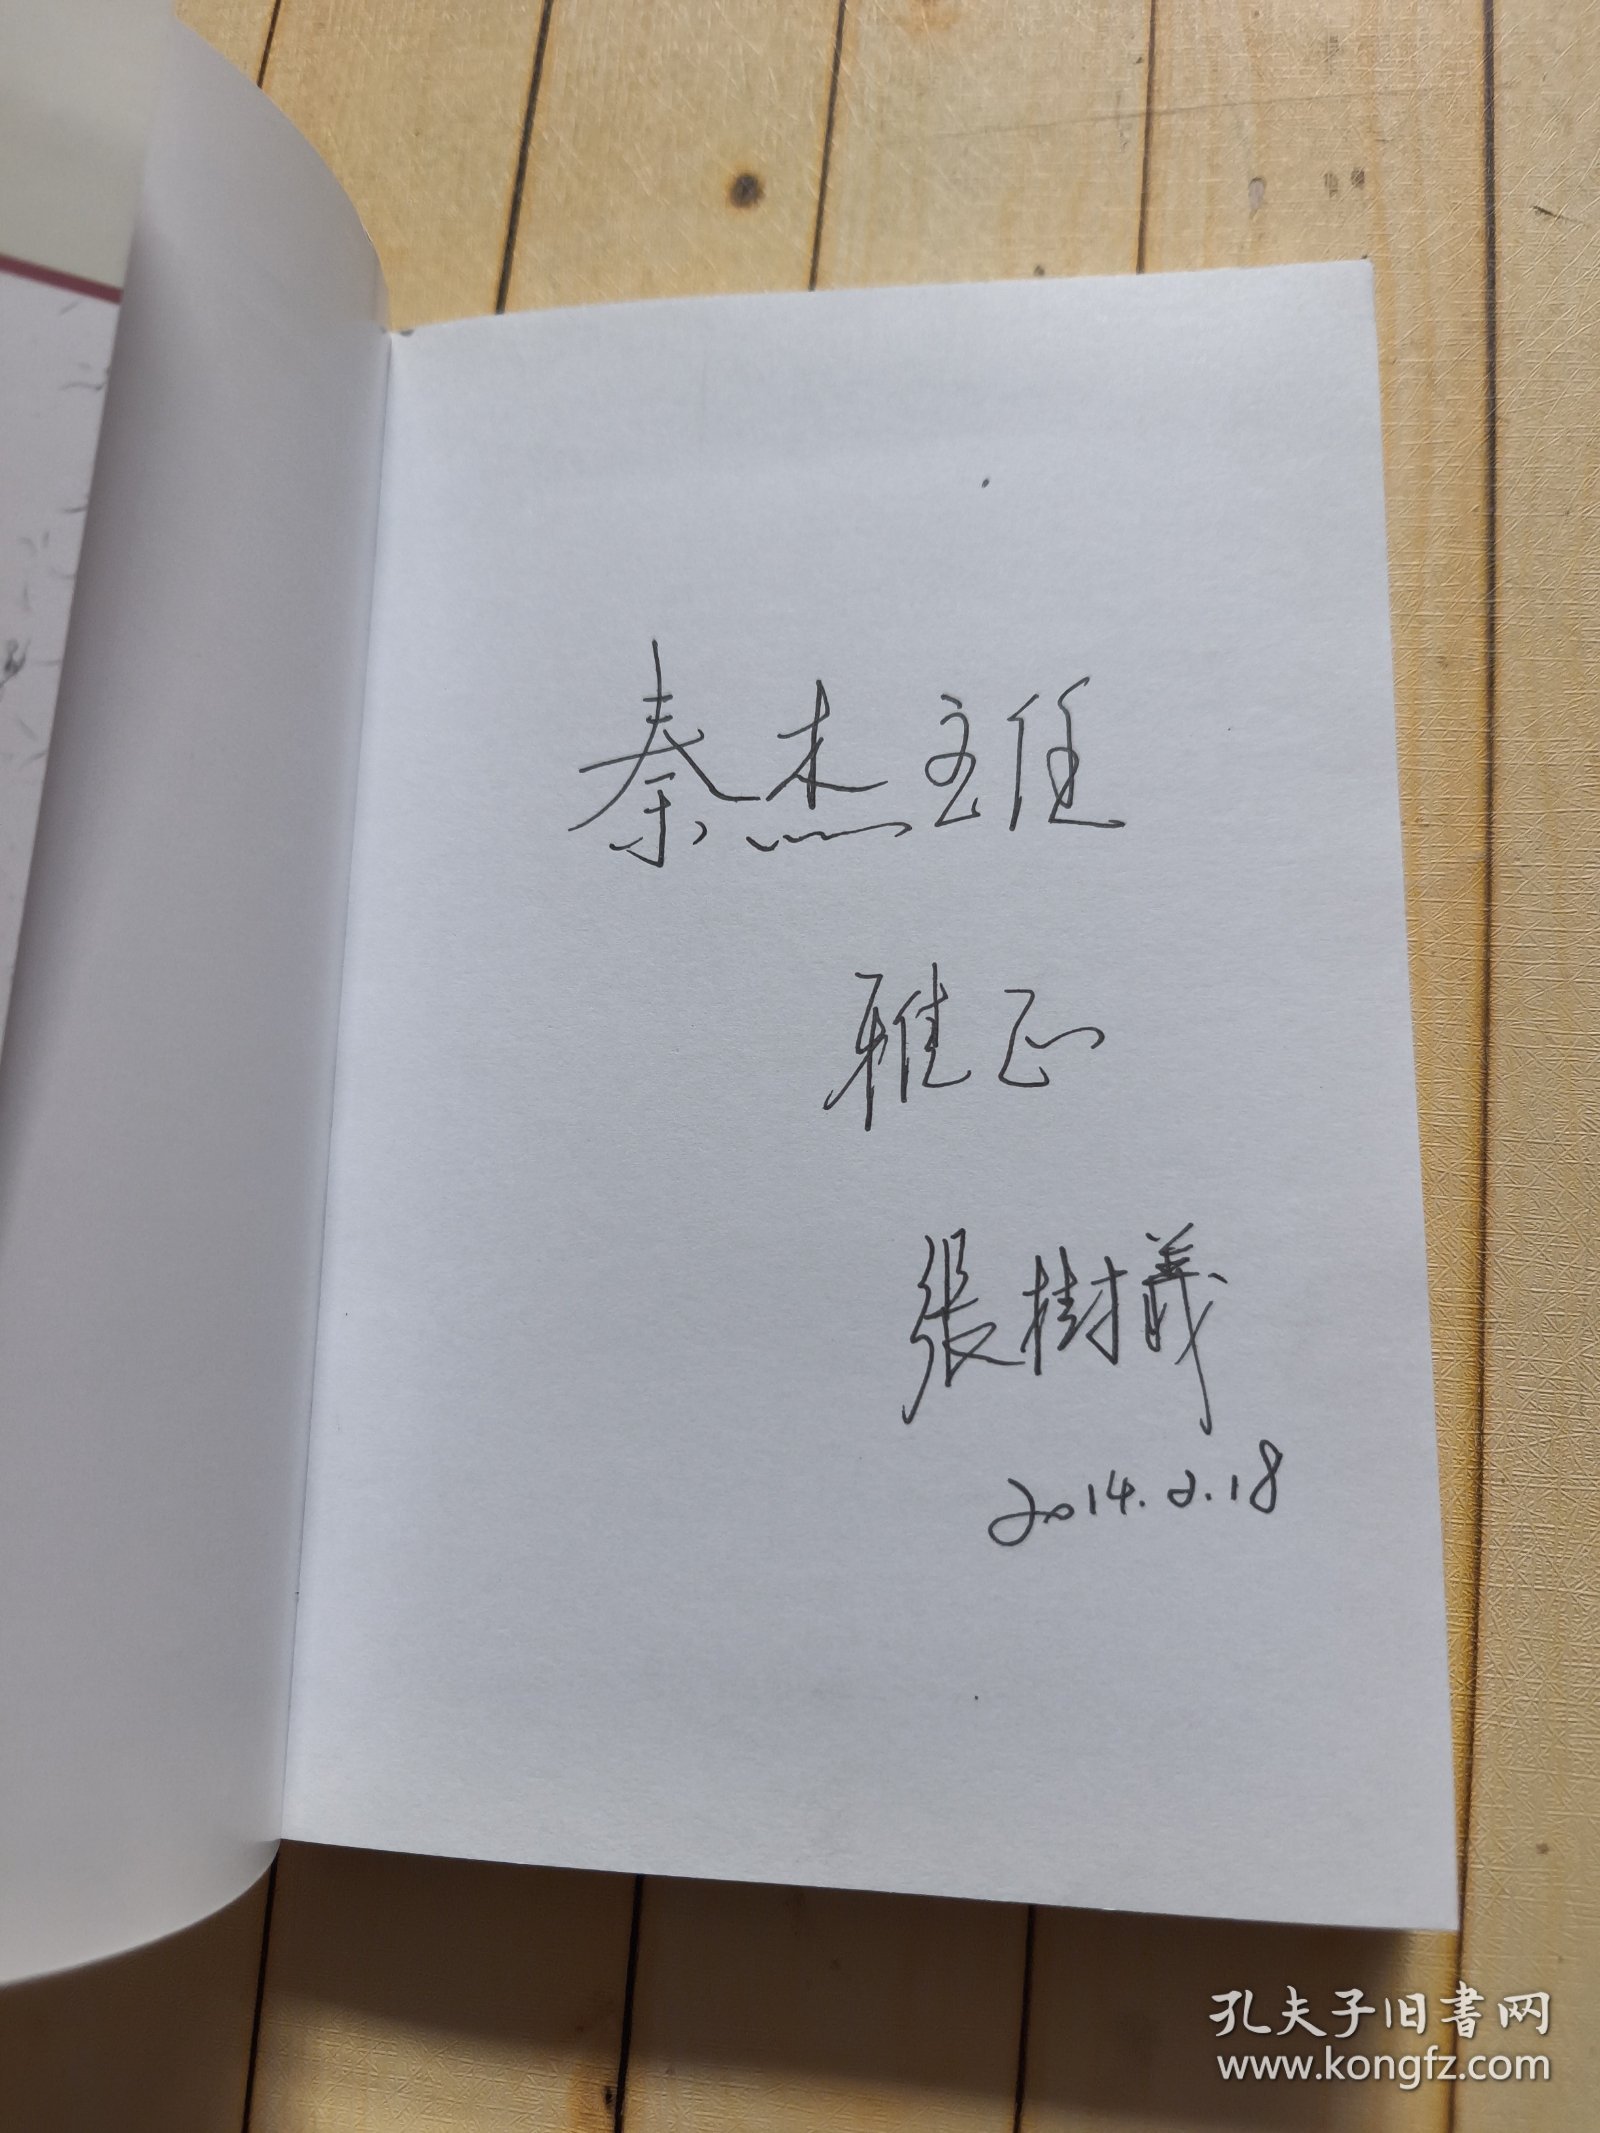 秦杰主任
雅正
張樹義
2014.2.18
孔夫子旧書网
www.kongfz.com